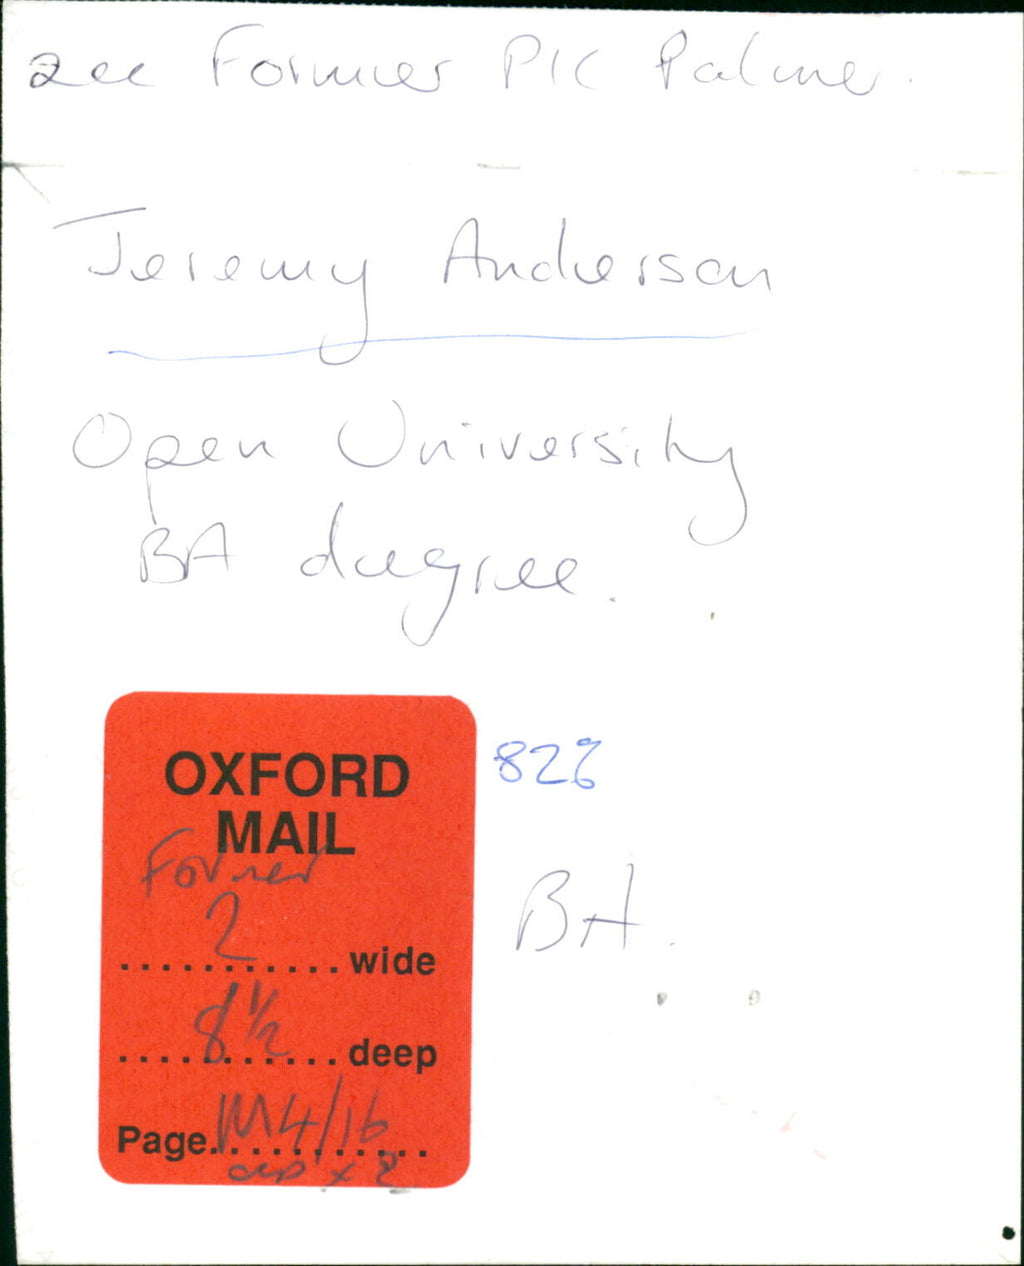 see Former PIC Palmer.
Jeremy Anderson
Open University
BA degree.
OXFORD
MAIL
Former
2
........... wide
8 1/2
........... deep
Page. M4/16
x 2
828
BA.